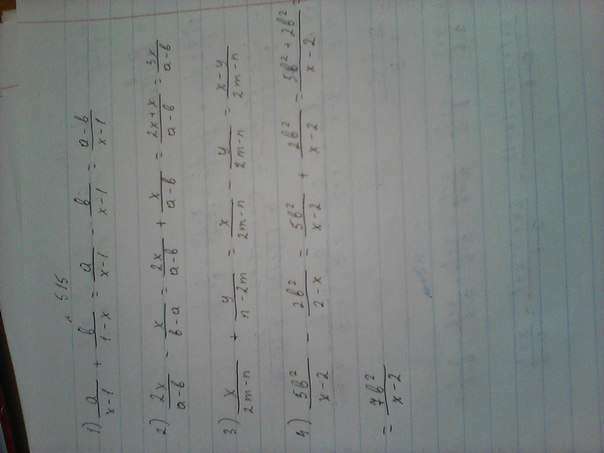 № 515
1) a/(x-1) + b/(1-x) = a/(x-1) - b/(x-1) = (a-b)/(x-1)
2) 2x/(a-b) - x/(b-a) = 2x/(a-b) + x/(a-b) = (2x+x)/(a-b) = 3x/(a-b)
3) x/(2m-n) + y/(n-2m) = x/(2m-n) - y/(2m-n) = (x-y)/(2m-n)
4) 5b²/(x-2) - 2b²/(2-x) = 5b²/(x-2) + 2b²/(x-2) = (5b²+2b²)/(x-2) =
= 7b²/(x-2)